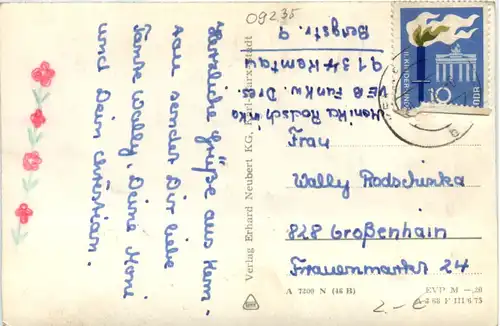 09235
Herzliche Grüße aus Kem-
tau sendet Dir liebe
Tante Wally, Deine Moni
und Dein Christian.
Verlag Erhard Neubert KG, Karl-Marx-Stadt
Monika Rodschinka
VEB Funkw. Dres.
9134 Kemtau
Bergstr. 9
DDR
10
Frau
Wally Rodschinka
828 Großenhain
Frauenmarkt 24
A 7200 N (46 B)
EVP M —,20
2.- €